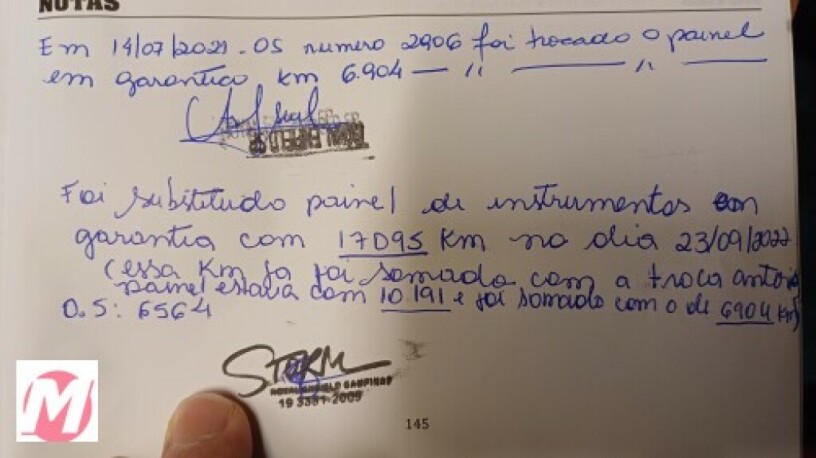 NOTAS
Em 14/07/2021 - OS numero 2906 foi trocado o painel
em garantia km 6.904 — " — " —
ROYAL ENFIELD SP
Foi substituido painel de instrumentos em
garantia com 17095 Km no dia 23/09/2022
(essa Km ja foi somado com a troca anterior
painel estava com 10.191 e foi somado com o de 6904 km)
O.S: 6564
STORM
ROYAL ENFIELD CAMPINAS
19 3381-2009
145
M